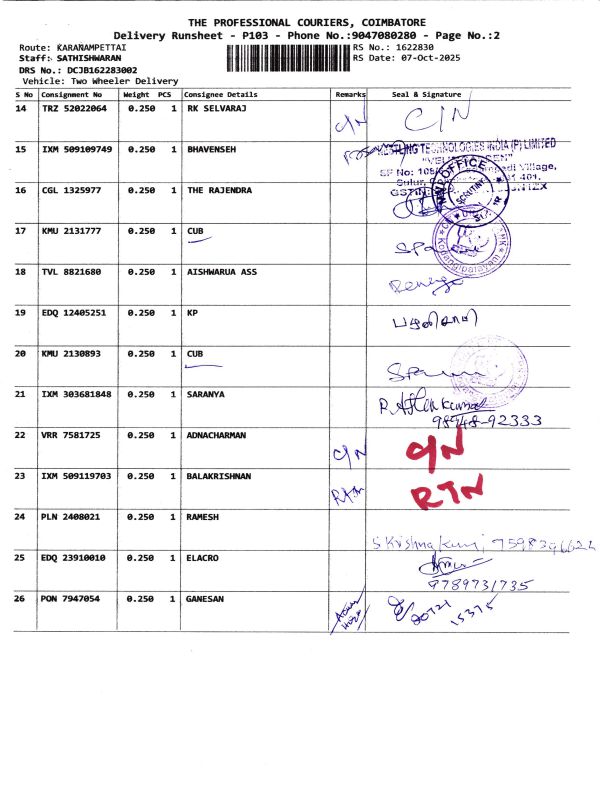 THE PROFESSIONAL COURIERS, COIMBATORE
Delivery Runsheet - P103 - Phone No.:9047080280 - Page No.:2
Route: KARANAMPETTAI RS No.: 1622830
Staff: SATHISHWARAN RS Date: 07-Oct-2025
DRS No.: DCJB162283002
Vehicle: Two Wheeler Delivery
S No Consignment No Weight PCS Consignee Details Remarks Seal & Signature
14 TRZ 52022064 0.250 1 RK SELVARAJ C/N C/N
15 IXM 509109749 0.250 1 BHAVENSEH
TECHNOLOGIES INDIA (P) LIMITED
16 CGL 1325977 0.250 1 THE RAJENDRA
17 KMU 2131777 0.250 1 CUB
18 TVL 8821680 0.250 1 AISHWARUA ASS
19 EDQ 12405251 0.250 1 KP பழனிசாமி
20 KMU 2130893 0.250 1 CUB
21 IXM 303681848 0.250 1 SARANYA
98948-92333
22 VRR 7581725 0.250 1 ADNACHARMAN C/N C/N
23 IXM 509119703 0.250 1 BALAKRISHNAN RTN RTN
24 PLN 2408021 0.250 1 RAMESH
S Krishna
25 EDQ 23910010 0.250 1 ELACRO
9789731735
26 PON 7947054 0.250 1 GANESAN
80721
15375